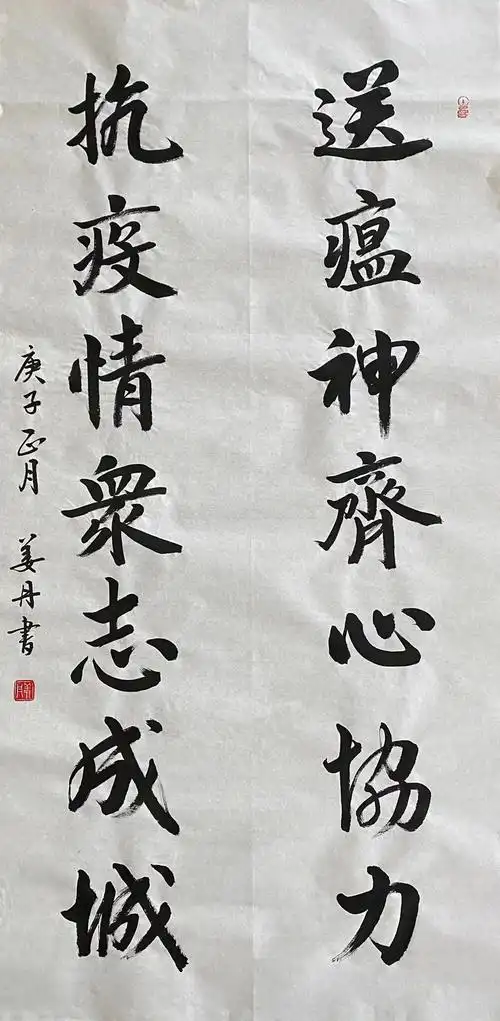 送瘟神齊心協力
抗疫情衆志成城
庚子正月 姜丹書